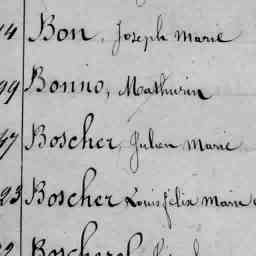 14 Bon, Joseph Marie
99 Bonno, Mathurin
47 Boscher, Julien Marie
23 Boscher Louis félix Marie
Boscherel